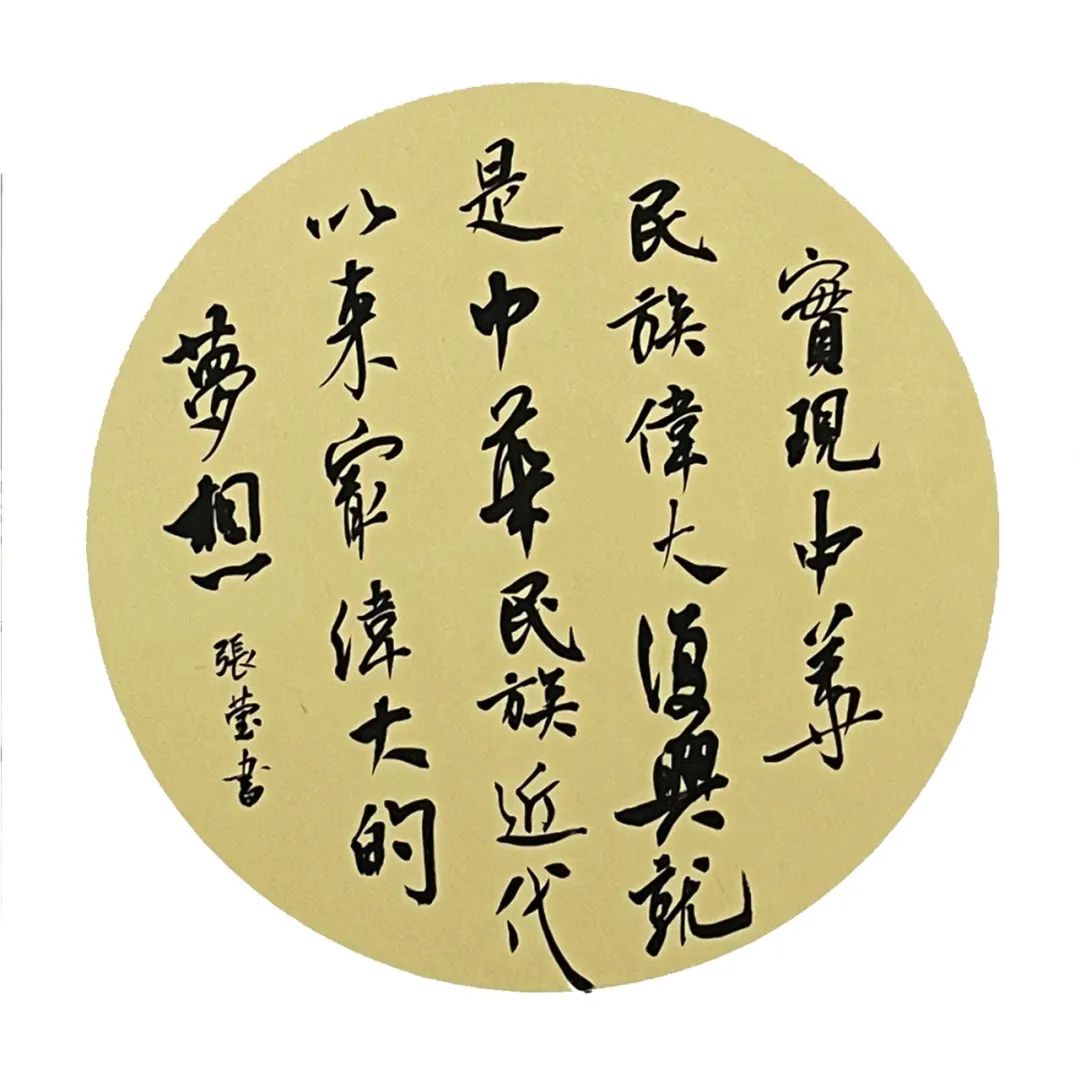 實現中華
民族偉大復興就
是中華民族近代
以来最偉大的
夢想
張莹书